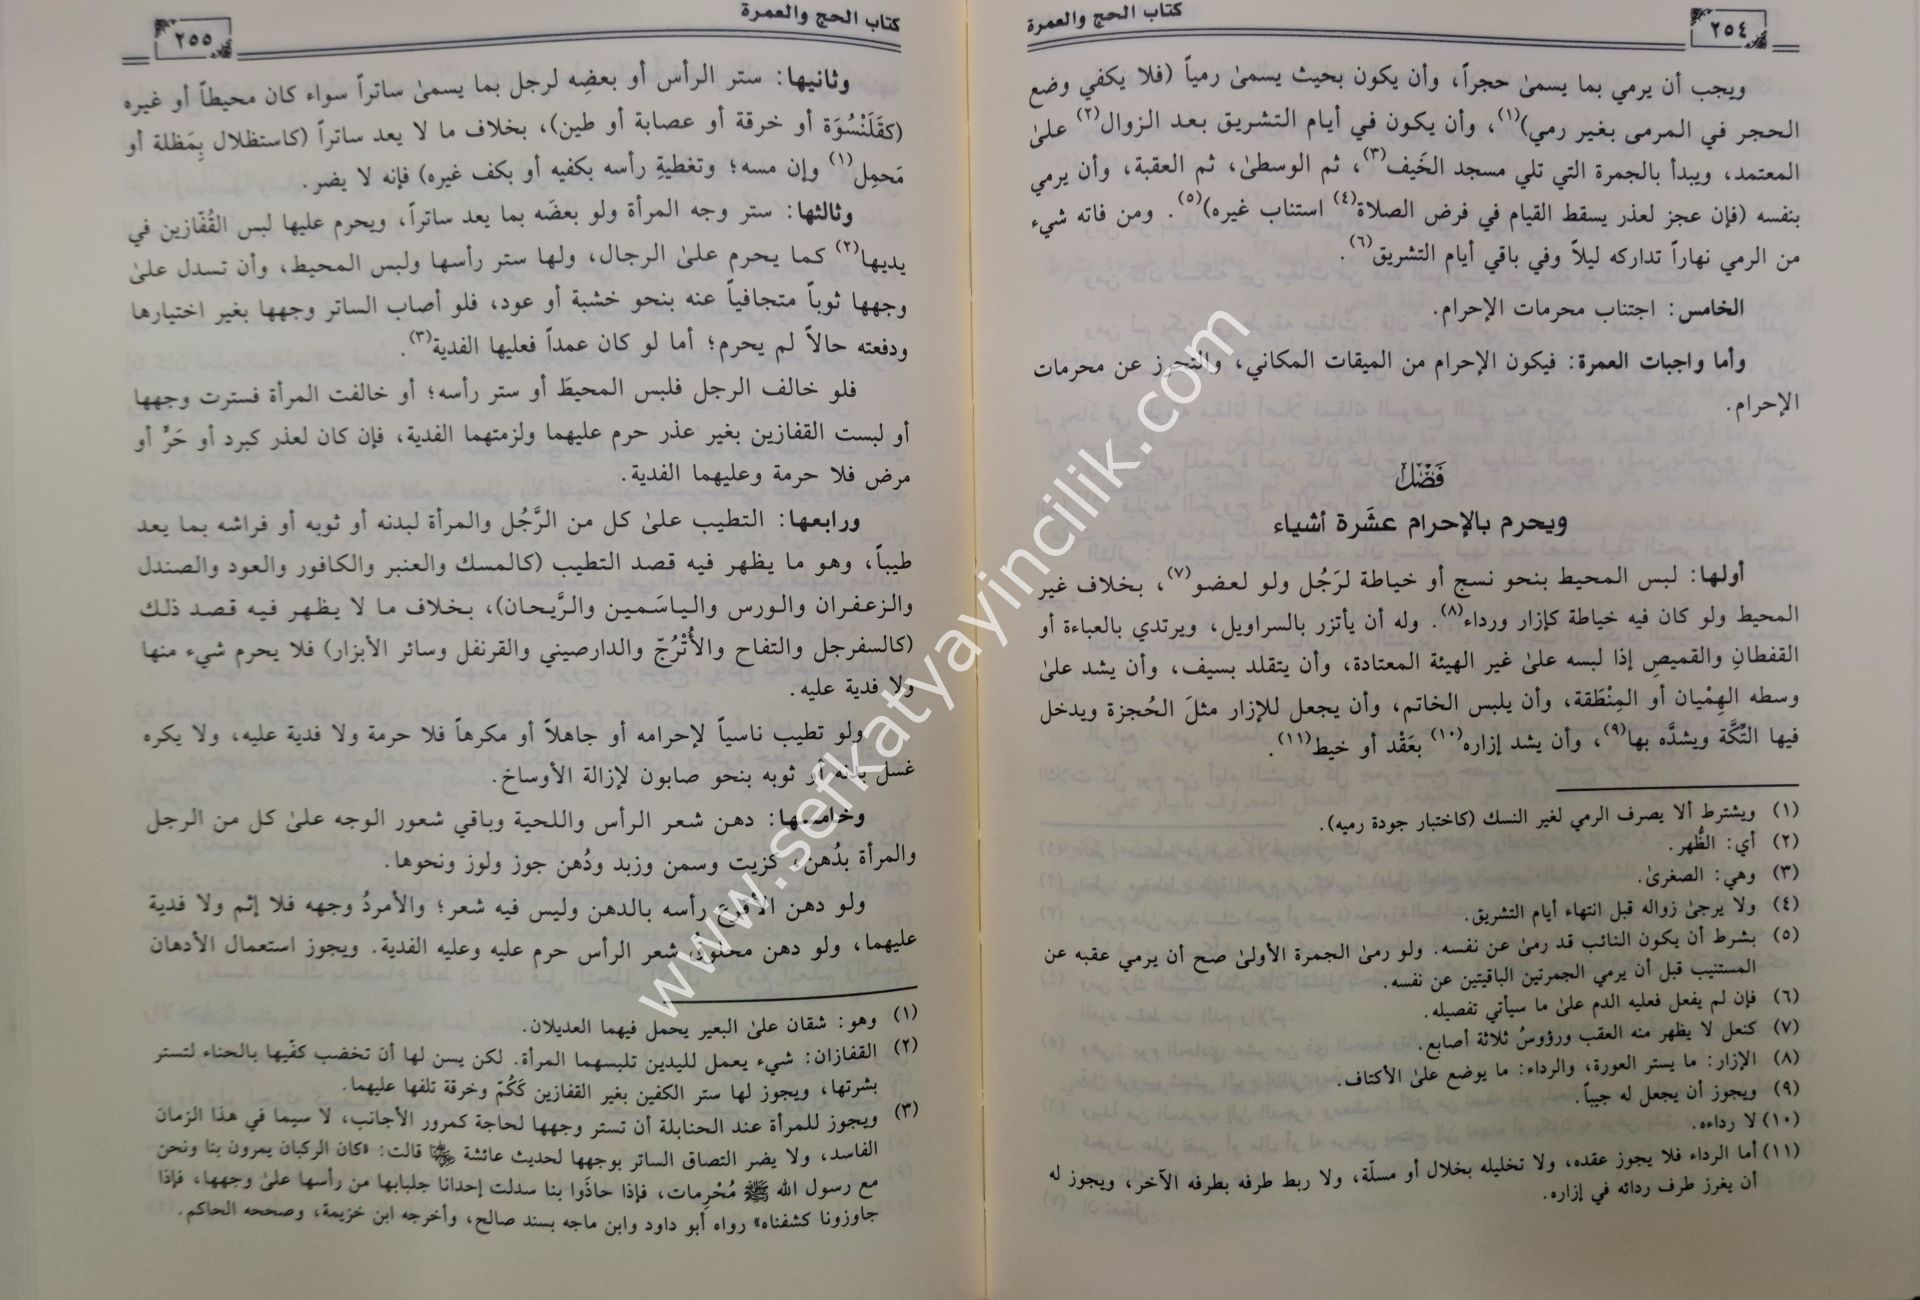 كتاب الحج والعمرة
٢٥٤
ويجب أن يرمي بما يسمىٰ حجراً، وأن يكون بحيث يسمىٰ رمياً (فلا يكفي وضع
الحجر في المرمى بغير رمي)(١)، وأن يكون في أيام التشريق بعد الزوال(٢) علىٰ
المعتمد، ويبدأ بالجمرة التي تلي مسجد الخَيف(٣)، ثم الوسطىٰ، ثم العقبة، وأن يرمي
بنفسه (فإن عجز لعذر يسقط القيام في فرض الصلاة(٤) استناب غيره)(٥). ومن فاته شيء
من الرمي نهاراً تداركه ليلاً وفي باقي أيام التشريق(٦).
الخامس: اجتناب محرمات الإحرام.
وأما واجبات العمرة: فيكون الإحرام من الميقات المكاني، والتحرز عن محرمات
الإحرام.
فَصْل
ويحرم بالإحرام عشَرة أشياء
أولها: لبس المحيط بنحو نسج أو خياطة لرَجُل ولو لعضو(٧)، بخلاف غير
المحيط ولو كان فيه خياطة كإزار ورداء(٨). وله أن يأتزر بالسراويل، ويرتدي بالعباءة أو
القفطانِ والقميصِ إذا لبسه علىٰ غير الهيئة المعتادة، وأن يتقلد بسيف، وأن يشد علىٰ
وسطه الهِمْيان أو المِنْطَقة، وأن يلبس الخاتم، وأن يجعل للإزار مثلَ الحُجزة ويدخل
فيها التِّكَّة ويشدَّه بها(٩)، وأن يشد إزاره(١٠) بعَقْد أو خيط(١١).
(١) ويشترط ألا يصرف الرمي لغير النسك (كاختبار جودة رميه).
(٢) أي: الظُّهر.
(٣) وهي: الصغرىٰ.
(٤) ولا يرجىٰ زواله قبل انتهاء أيام التشريق.
(٥) بشرط أن يكون النائب قد رمىٰ عن نفسه. ولو رمىٰ الجمرة الأولىٰ صح أن يرمي عقبه عن
المستنيب قبل أن يرمي الجمرتين الباقيتين عن نفسه.
(٦) فإن لم يفعل فعليه الدم علىٰ ما سيأتي تفصيله.
(٧) كنعل لا يظهر منه العقب ورؤوسُ ثلاثة أصابع.
(٨) الإزار: ما يستر العورة، والرداء: ما يوضع علىٰ الأكتاف.
(٩) ويجوز أن يجعل له جيباً.
(١٠) لا رداءه.
(١١) أما الرداء فلا يجوز عقده، ولا تخليله بخلال أو مسلّة، ولا ربط طرفه بطرفه الآخر، ويجوز له
أن يغرز طرف ردائه في إزاره.
كتاب الحج والعمرة
٢٥٥
وثانيها: ستر الرأس أو بعضِه لرجل بما يسمىٰ ساتراً سواء كان محيطاً أو غيره
(كقَلَنْسُوَة أو خرقة أو عصابة أو طين)، بخلاف ما لا يعد ساتراً (كاستظلال بِمَظلة أو
مَحمِل(١) وإن مسه؛ وتغطيةِ رأسه بكفيه أو بكف غيره) فإنه لا يضر.
وثالثها: ستر وجه المرأة ولو بعضَه بما يعد ساتراً، ويحرم عليها لبس القُفّازين في
يديها(٢) كما يحرم علىٰ الرجال، ولها ستر رأسها ولبس المحيط، وأن تسدل علىٰ
وجهها ثوباً متجافياً عنه بنحو خشبة أو عود، فلو أصاب الساتر وجهها بغير اختيارها
ودفعته حالاً لم يحرم؛ أما لو كان عمداً فعليها الفدية(٣).
فلو خالف الرجل فلبس المحيطَ أو ستر رأسه؛ أو خالفت المرأة فسترت وجهها
أو لبست القفازين بغير عذر حرم عليهما ولزمتهما الفدية، فإن كان لعذر كبرد أو حَرٍّ أو
مرض فلا حرمة وعليهما الفدية.
ورابعها: التطيب علىٰ كل من الرَّجُل والمرأة لبدنه أو ثوبه أو فراشه بما يعد
طيباً، وهو ما يظهر فيه قصد التطيب (كالمسك والعنبر والكافور والعود والصندل
والزعفران والورس والياسَمين والرَّيحان)، بخلاف ما لا يظهر فيه قصد ذلك
(كالسفرجل والتفاح والأُتْرُجّ والدارصيني والقرنفل وسائر الأبزار) فلا يحرم شيء منها
ولا فدية عليه.
ولو تطيب ناسياً لإحرامه أو جاهلاً أو مكرهاً فلا حرمة ولا فدية عليه، ولا يكره
غسل بدنه أو ثوبه بنحو صابون لإزالة الأوساخ.
وخامسها: دهن شعر الرأس واللحية وباقي شعور الوجه علىٰ كل من الرجل
والمرأة بدُهن، كزيت وسمن وزبد ودُهن جوز ولوز ونحوها.
ولو دهن الأقرع رأسه بالدهن وليس فيه شعر؛ والأمردُ وجهه فلا إثم ولا فدية
عليهما، ولو دهن محلوق شعر الرأس حرم عليه وعليه الفدية. ويجوز استعمال الأدهان
(١) وهو: شقان علىٰ البعير يحمل فيهما العديلان.
(٢) القفازان: شيء يعمل لليدين تلبسهما المرأة. لكن يسن لها أن تخضب كفّيها بالحناء لتستر
بشرتها، ويجوز لها ستر الكفين بغير القفازين كَكُمّ وخرقة تلفها عليهما.
(٣) ويجوز للمرأة عند الحنابلة أن تستر وجهها لحاجة كمرور الأجانب، لا سيما في هذا الزمان
الفاسد، ولا يضر التصاق الساتر بوجهها لحديث عائشة رضي الله عنها قالت: «كان الركبان يمرون بنا ونحن
مع رسول الله ﷺ مُحْرِمات، فإذا حاذَوا بنا سدلت إحدانا جلبابها من رأسها علىٰ وجهها، فإذا
جاوزونا كشفناه» رواه أبو داود وابن ماجه بسند صالح، وأخرجه ابن خزيمة، وصححه الحاكم.
www.sefkatyayincilik.com